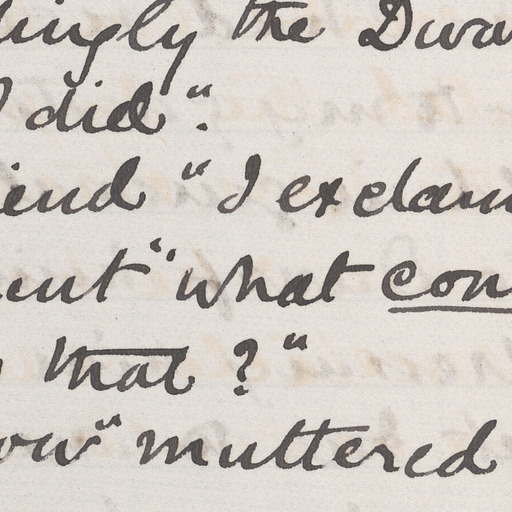 dingly the Dwa
I did".
iend "I exclaim
ent" what con
that?"
ow" muttered